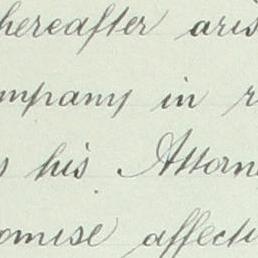 hereafter aris
ompany in r
s his Attorn
omise affecti